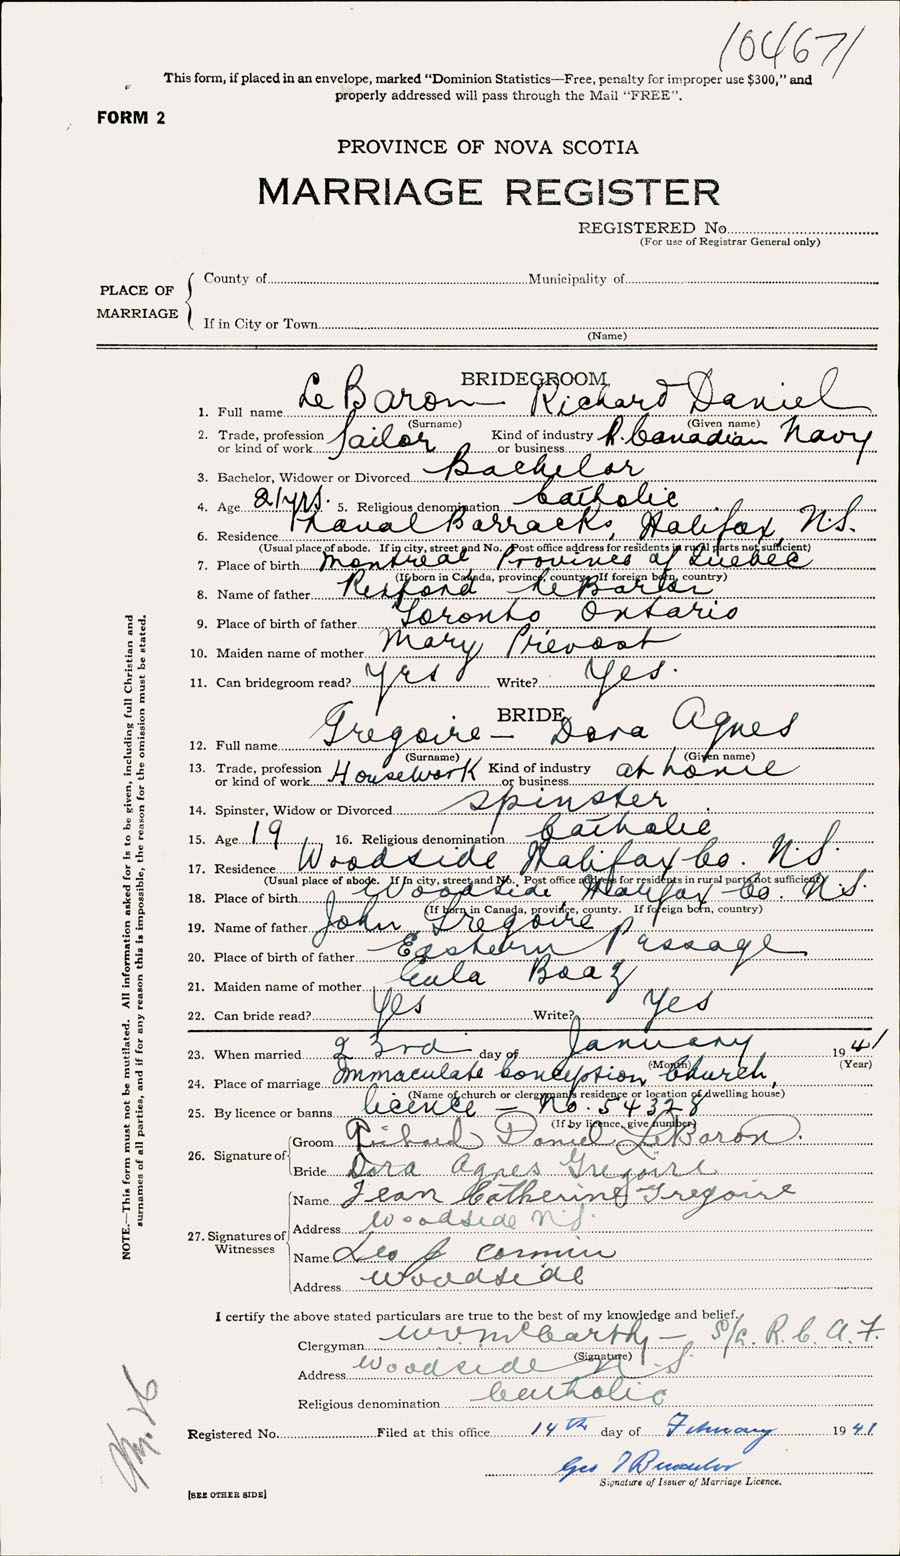 104671
This form, if placed in an envelope, marked “Dominion Statistics—Free, penalty for improper use $300,” and
properly addressed will pass through the Mail “FREE”.
FORM 2
PROVINCE OF NOVA SCOTIA
MARRIAGE REGISTER
REGISTERED No.
(For use of Registrar General only)
PLACE OF MARRIAGE
County of Municipality of
If in City or Town
(Name)
BRIDEGROOM
1. Full name LeBaron — Richard Daniel
(Surname) (Given name)
2. Trade, profession or kind of work Sailor Kind of industry or business R. Canadian Navy
3. Bachelor, Widower or Divorced Bachelor
4. Age 21 yrs. 5. Religious denomination Catholic
6. Residence Naval Barracks, Halifax, N.S.
(Usual place of abode. If in city, street and No. Post office address for residents in rural parts not sufficient)
7. Place of birth Montreal, Province of Quebec
(If born in Canada, province, county. If foreign born, country)
8. Name of father Rexford LeBaron
9. Place of birth of father Toronto Ontario
10. Maiden name of mother Mary Prevost
11. Can bridegroom read? yes Write? Yes.
BRIDE
12. Full name Gregoire — Dora Agnes
(Surname) (Given name)
13. Trade, profession or kind of work Housework Kind of industry or business at home
14. Spinster, Widow or Divorced spinster
15. Age 19 16. Religious denomination Catholic
17. Residence Woodside Halifax Co. N.S.
(Usual place of abode. If In city, street and No. Post office address for residents in rural parts not sufficient)
18. Place of birth Woodside Halifax Co. N.S.
(If born in Canada, province, county. If foreign born, country)
19. Name of father John Gregoire
20. Place of birth of father Eastern Passage
21. Maiden name of mother Boaz
22. Can bride read? Yes Write? Yes
23. When married 23rd day of January 1941
(Month) (Year)
24. Place of marriage Immaculate Conception Church,
(Name of church or clergyman's residence or location of dwelling house)
25. By licence or banns licence — No. 54328
(If by licence, give number)
26. Signature of Groom Richard Daniel LeBaron.
Bride Dora Agnes Gregoire
27. Signatures of Witnesses
Name Jean Catherine Gregoire
Address Woodside N.S.
Name Leo J Cormier
Address Woodside
I certify the above stated particulars are true to the best of my knowledge and belief.
Clergyman W. McCarthy — S/L. R. C. A. F.
(Signature)
Address Woodside N.S.
Religious denomination Catholic
Registered No. Filed at this office 14th day of February 1941
Geo
Signature of Issuer of Marriage Licence.
[SEE OTHER SIDE]
NOTE.—This form must not be mutilated. All information asked for is to be given, including full Christian and
surnames of all parties, and if for any reason this is impossible, the reason for the omission must be stated.